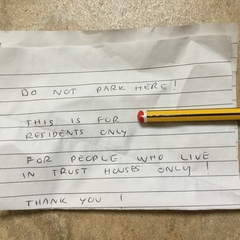 DO NOT PARK HERE!
THIS IS FOR
RESIDENTS ONLY
FOR PEOPLE WHO LIVE
IN TRUST HOUSES ONLY!
THANK YOU!